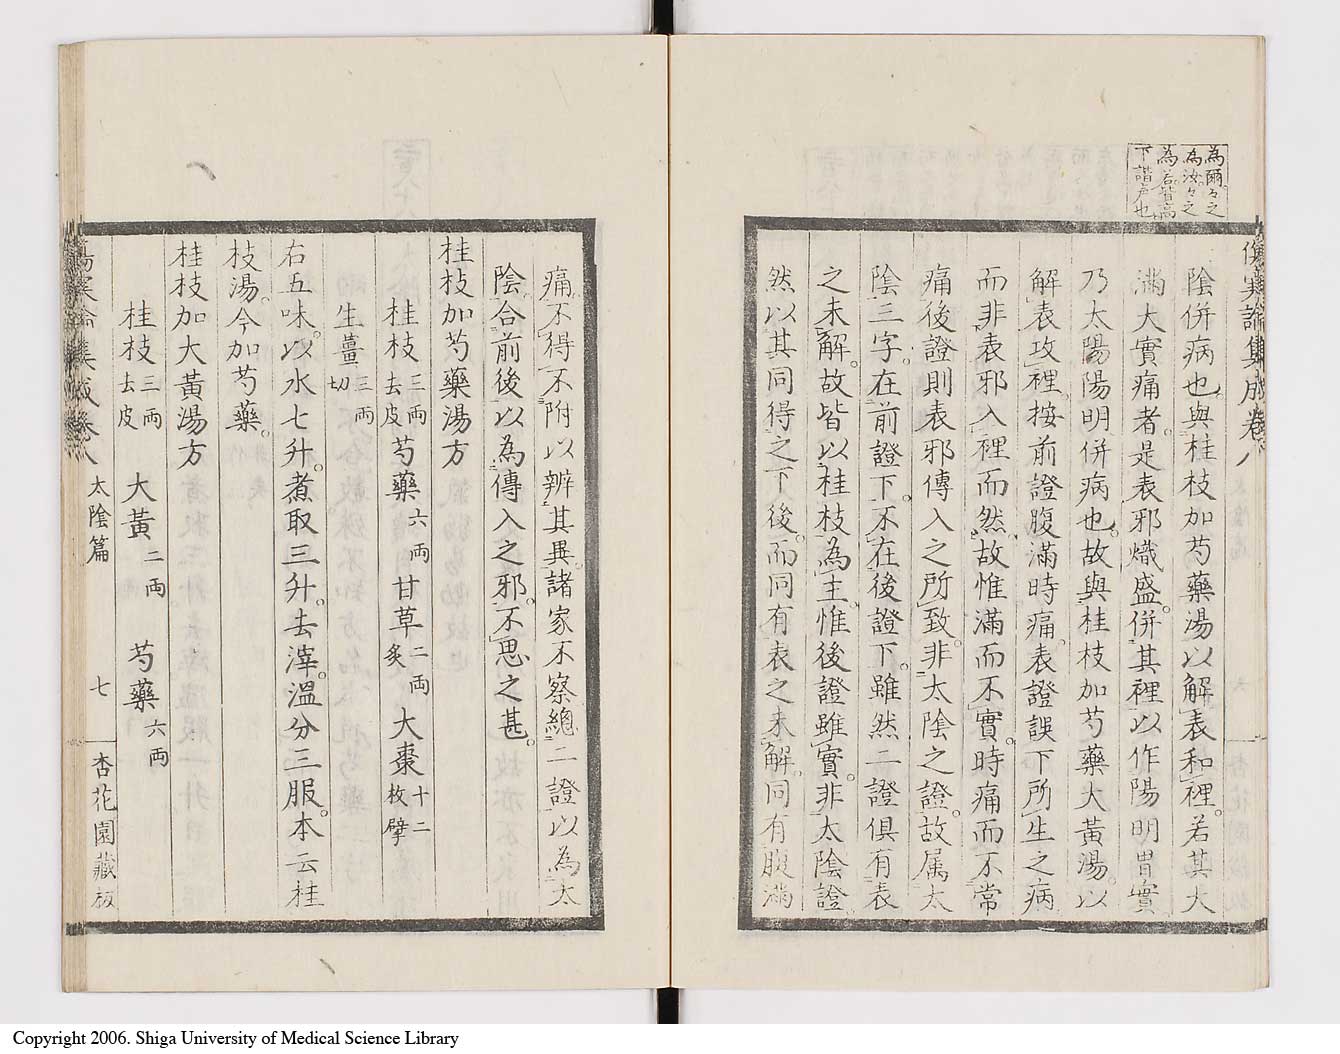 為爾々之
為汝々之
為若皆高
下諧声也
傷寒論集成卷八
陰併病也與桂枝加芍藥湯以解表和裡若其大
滿大實痛者是表邪熾盛併其裡以作陽明胃實
乃太陽陽明併病也故與桂枝加芍藥大黃湯以
解表攻裡按前證腹滿時痛表證誤下所生之病
而非表邪入裡而然故惟滿而不實時痛而不常
痛後證則表邪傳入之所致非太陰之證故属太
陰三字在前證下不在後證下雖然二證俱有表
之未解故皆以桂枝為主惟後證雖實非太陰證
然以其同得之下後而同有表之未解同有腹滿
痛不得不附以辨其異諸家不察總二證以為太
陰合前後以為傳入之邪不思之甚
桂枝加芍藥湯方
桂枝三両去皮 芍藥六両 甘草二両炙 大棗十二枚擘
生薑三両切
右五味以水七升煮取三升去滓溫分三服本云桂
枝湯今加芍藥
桂枝加大黃湯方
桂枝三両去皮 大黃二両 芍藥六両
傷寒論集成卷八 太陰篇 七 杏花園藏板
Copyright 2006. Shiga University of Medical Science Library